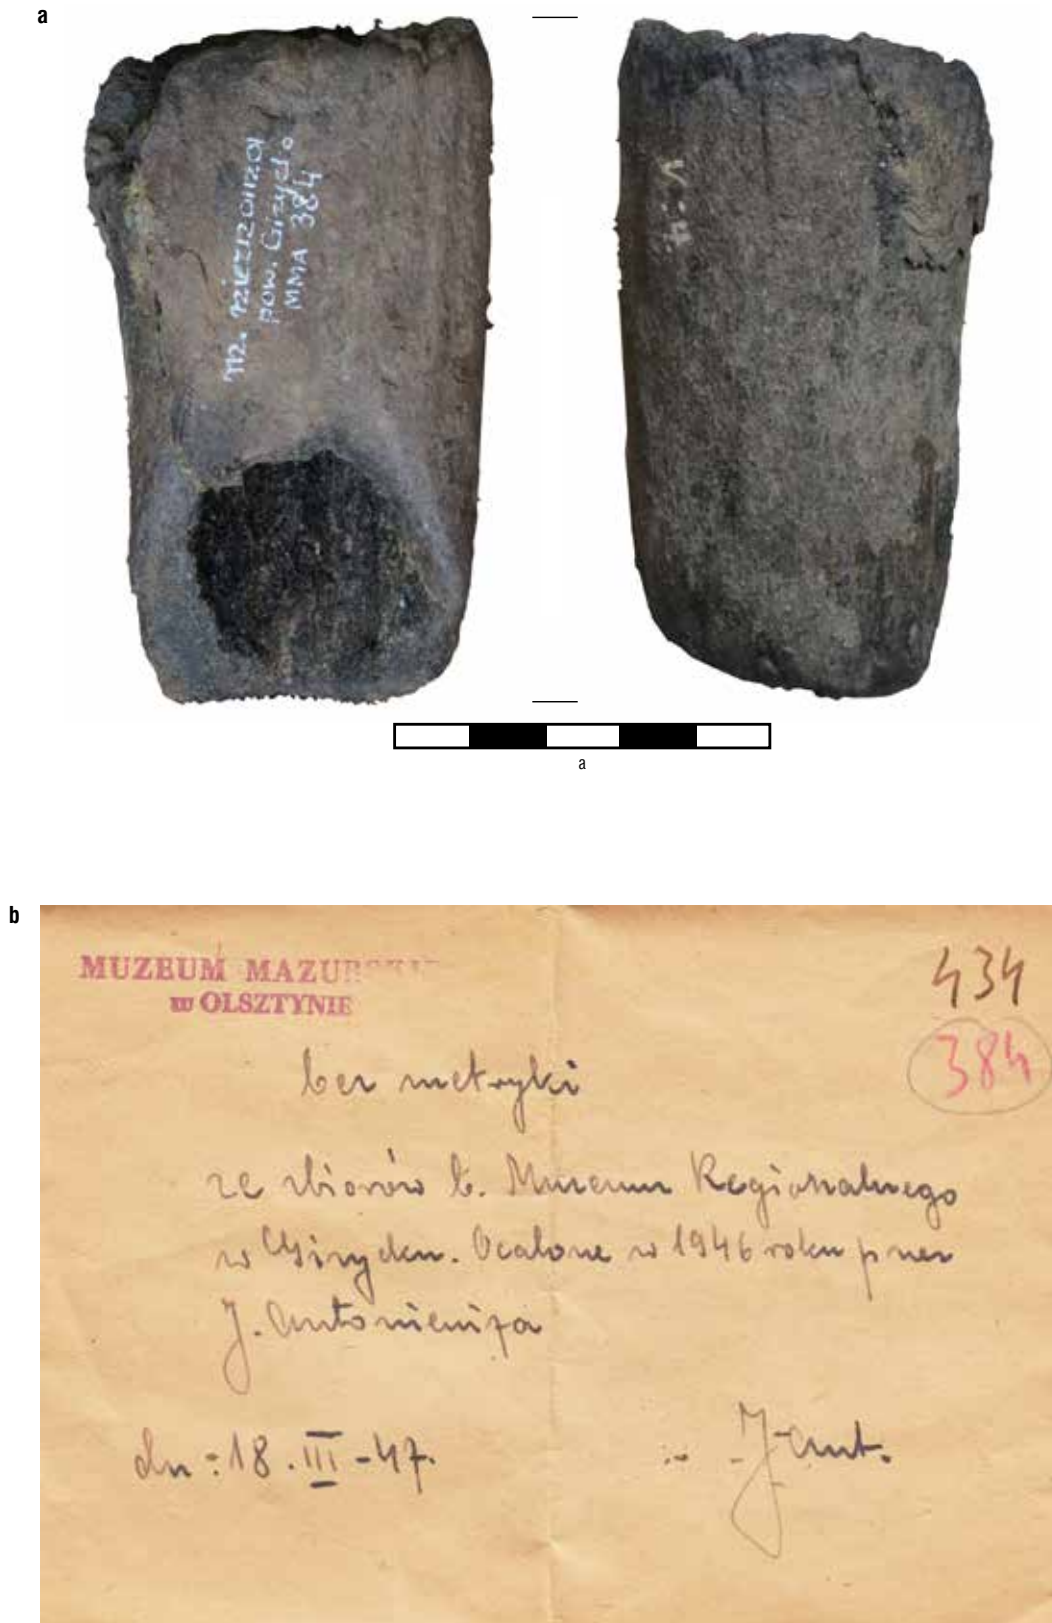 a
m. nieznana
pow. Giżycko
MMA 384
a
b
MUZEUM MAZURSKIE
w OLSZTYNIE
434
384
bez metryki
ze zbiorów b. Muzeum Regionalnego
w Giżycku. Ocalone w 1946 roku przez
J. Antoniewicza
dn: 18.III-47.
J. Ant.